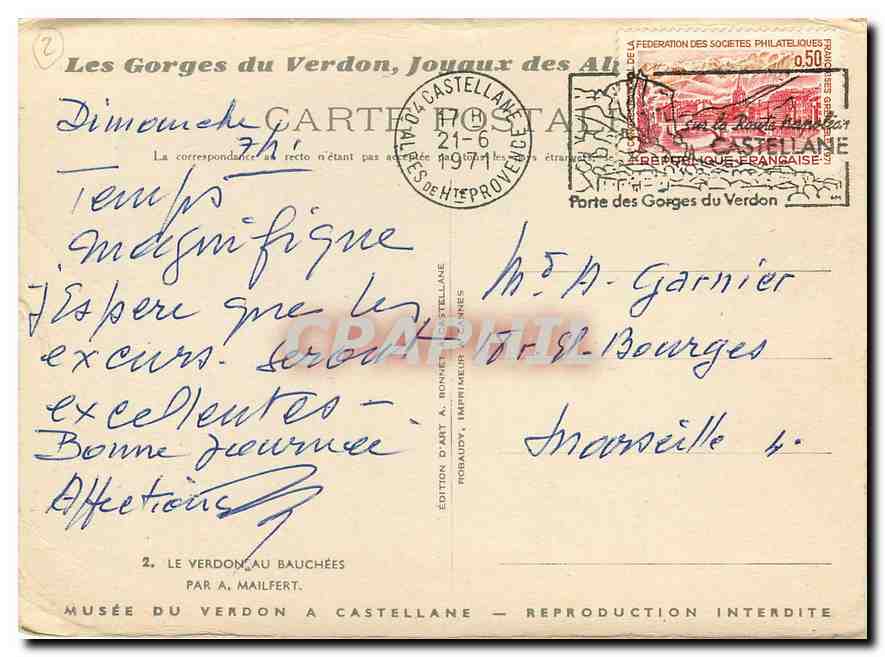 2
Les Gorges du Verdon, Joyaux des Al
CARTE POSTALE
La correspondance au recto n'étant pas acceptée par tous les pays étrangers, se
Dimanche
7h.
Temps
magnifique
J'Espere que les
excurs. seront
excellentes –
Bonne Journée
Affections
2. LE VERDON AU BAUCHÉES
PAR A. MAILFERT.
MUSÉE DU VERDON A CASTELLANE — REPRODUCTION INTERDITE
ÉDITION D'ART A. BONNET - CASTELLANE
ROBAUDY, IMPRIMEUR CANNES
04 CASTELLANE
17 H
21-6
1971
ALPES DE HTE PROVENCE
FEDERATION DES SOCIETES PHILATELIQUES
FRANÇAISES
0,50
REPUBLIQUE FRANÇAISE
sur la Route Napoléon
CASTELLANE
Porte des Gorges du Verdon
Md A. Garnier
Bourges
Marseille 4.
CPAPHIL